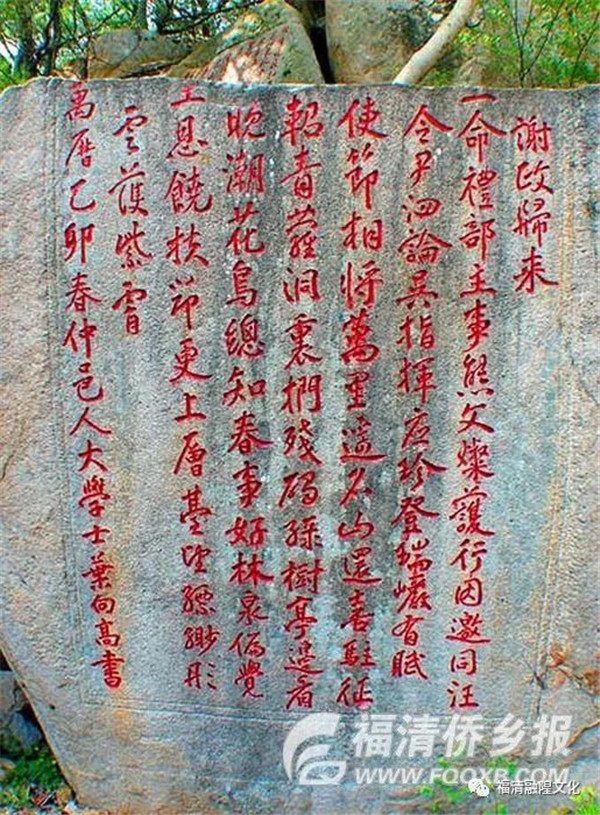 謝政歸来
一命禮部主事熊文燦護行因邀同汪
令尹泗論吴指揮应珍登瑞巖有賦
使節相將萬里遥名山還喜駐征
軺青蘿洞裏捫殘碣緑樹亭邊看
晚潮花鳥總知春事好林泉偏覺
主恩饒扶筇更上層臺望縹緲彤
雲護紫霄
萬曆乙卯春仲邑人大學士葉向高書
福清侨乡报
WWW.FQQXB.COM
福清融隍文化